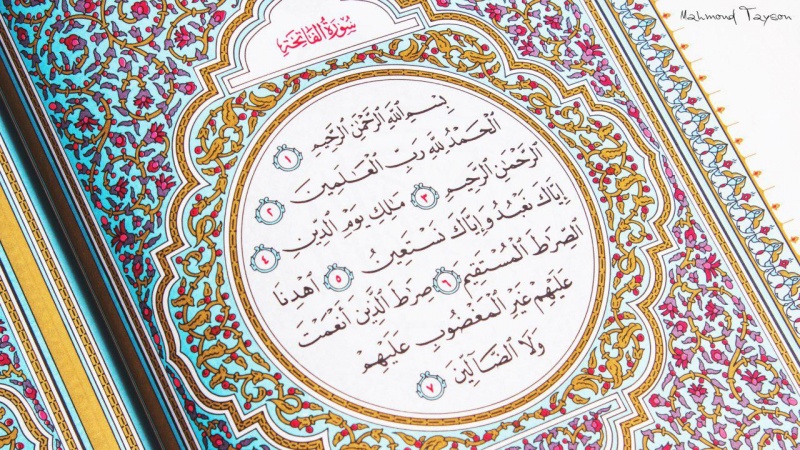 Mahmond Tayson
سُورَةُ الفَاتِحَةِ
بِسْمِ ٱللَّهِ ٱلرَّحْمَٰنِ ٱلرَّحِيمِ ١
ٱلْحَمْدُ لِلَّهِ رَبِّ ٱلْعَٰلَمِينَ ٢
ٱلرَّحْمَٰنِ ٱلرَّحِيمِ ٣ مَٰلِكِ يَوْمِ ٱلدِّينِ ٤
إِيَّاكَ نَعْبُدُ وَإِيَّاكَ نَسْتَعِينُ ٥ ٱهْدِنَا
ٱلصِّرَٰطَ ٱلْمُسْتَقِيمَ ٦ صِرَٰطَ ٱلَّذِينَ أَنْعَمْتَ
عَلَيْهِمْ غَيْرِ ٱلْمَغْضُوبِ عَلَيْهِمْ
وَلَا ٱلضَّآلِّينَ ٧